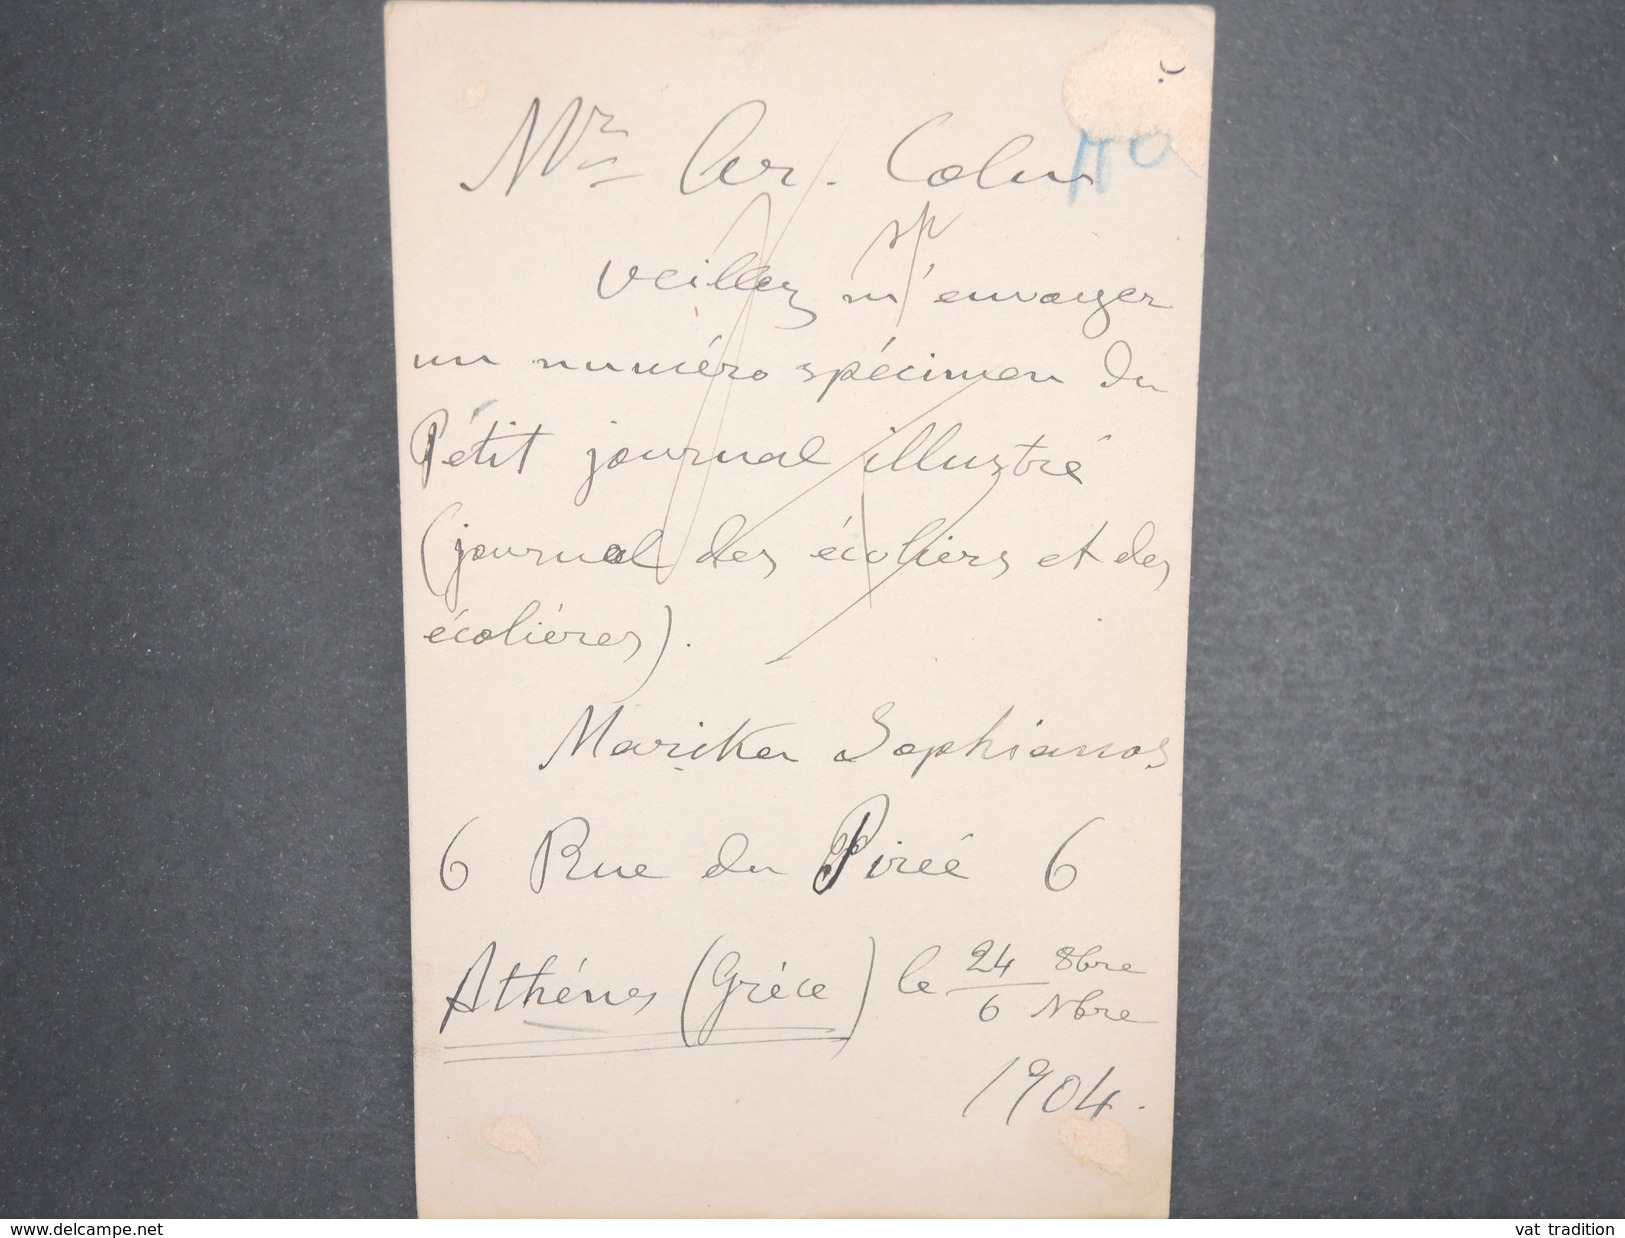 Mr Ar. Colin
sp
veillez m'envoyer
un numéro spécimen du
Pétit journal illustré
(journal des écoliers et des
écoliéres).
Marika Sophianos
6 Rue du Pireé 6
Athénes (Gréce) le 24 8bre
6 Nbre
1904.
www.delcampe.net
vat tradition